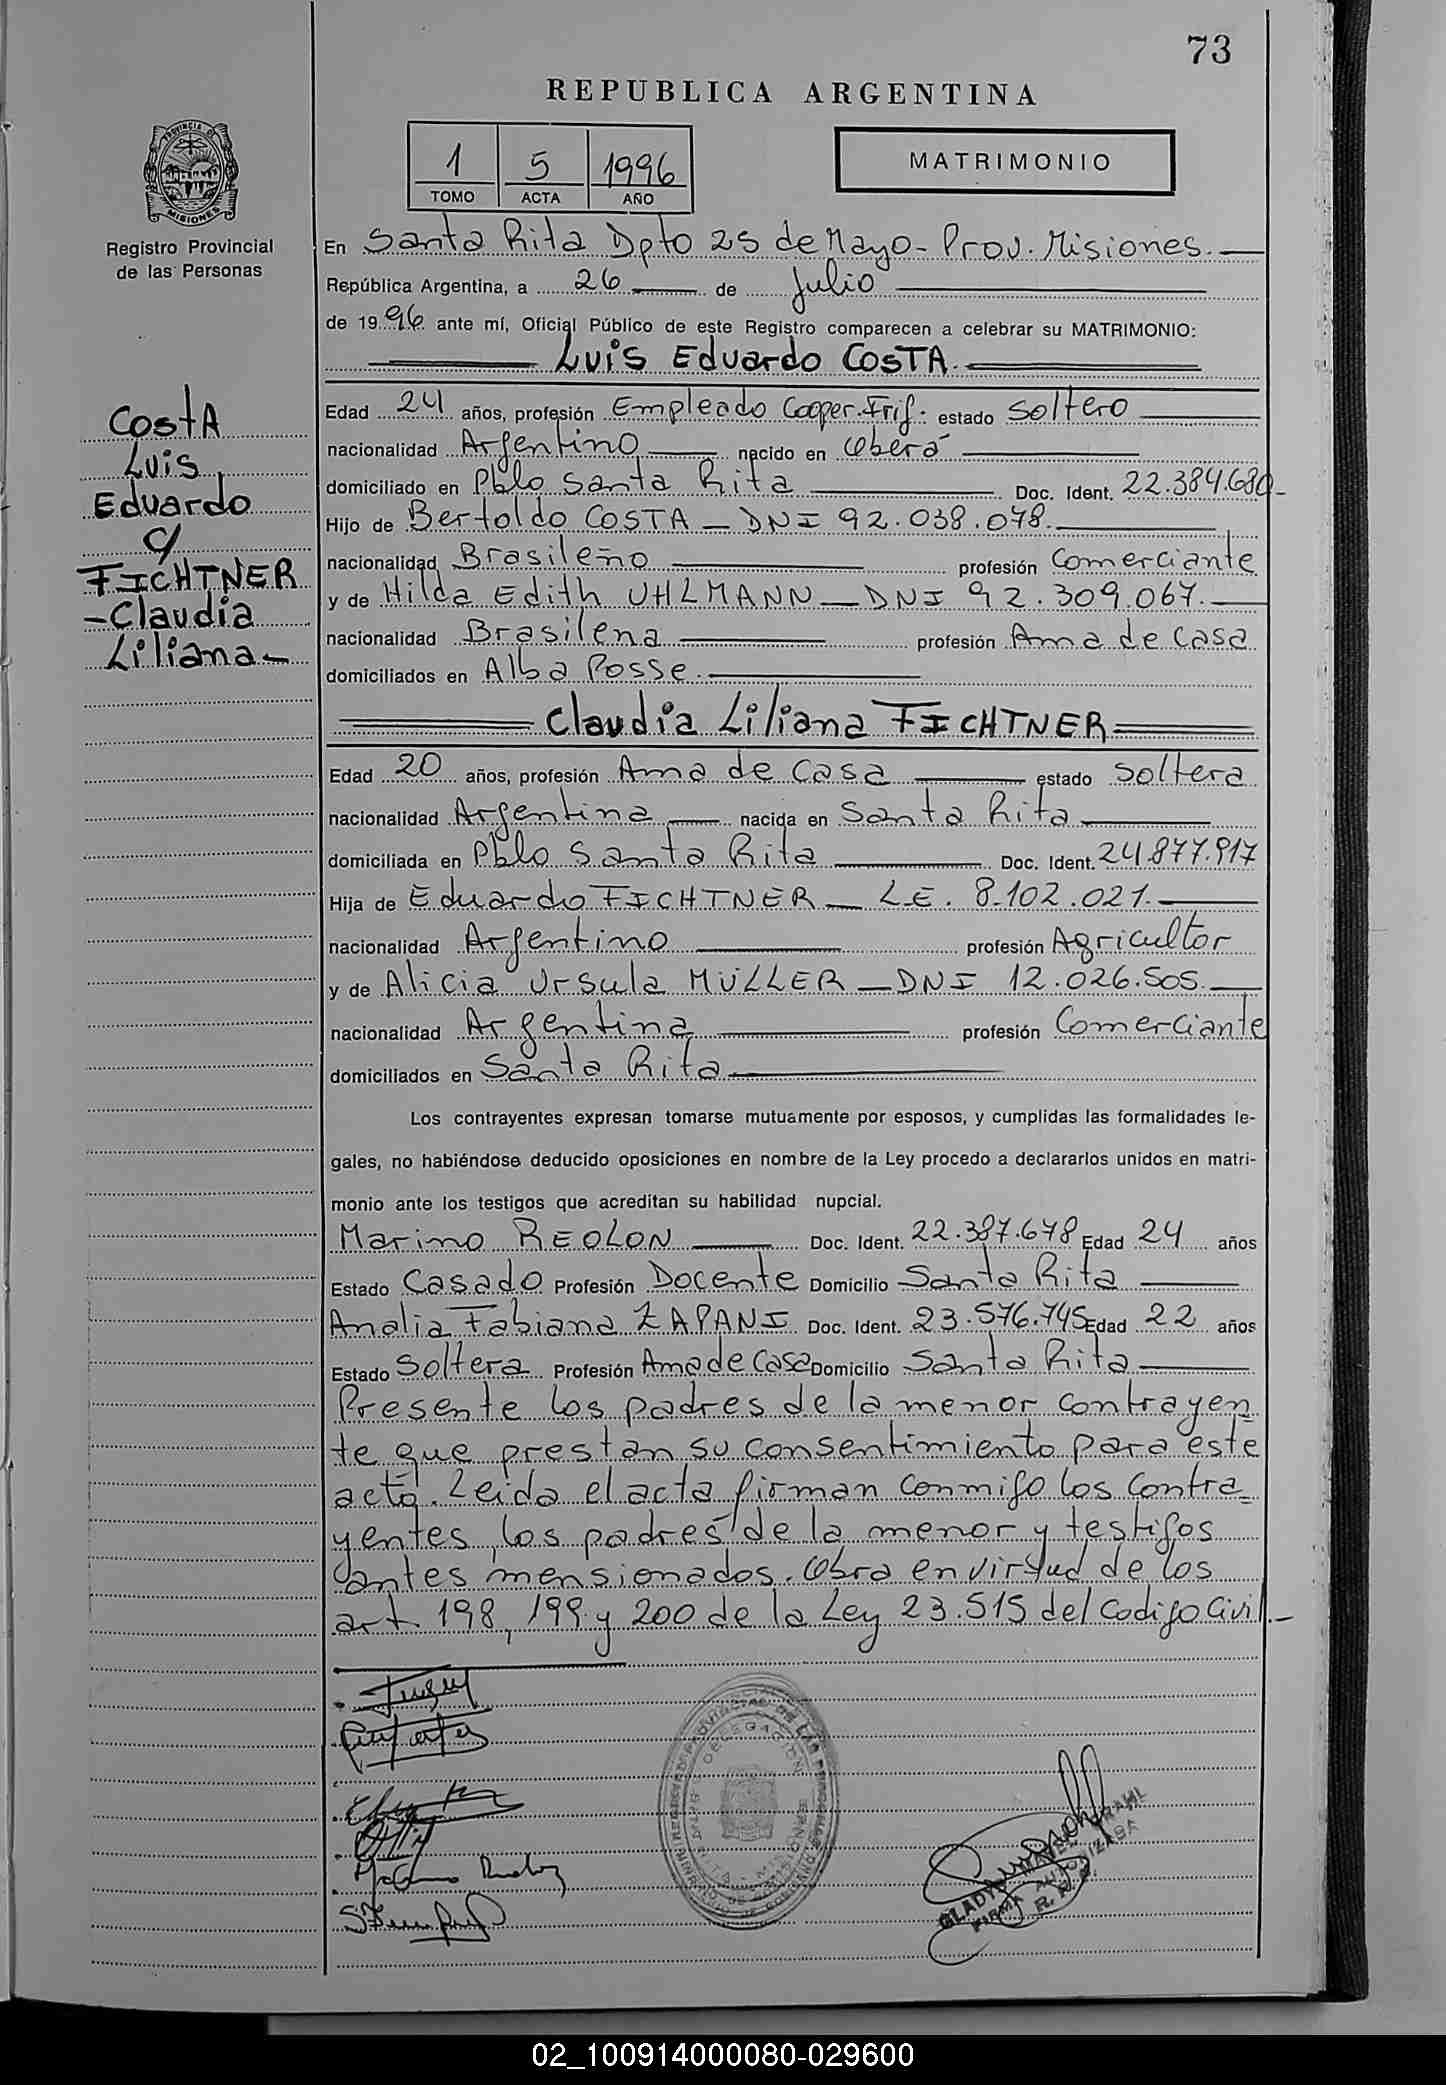 73
REPUBLICA ARGENTINA
PROVINCIA DE
MISIONES
Registro Provincial
de las Personas
1 5 1996
TOMO ACTA AÑO
MATRIMONIO
En Santa Rita Dpto 25 de Mayo - Prov. Misiones.
República Argentina, a 26 de Julio
de 1996 ante mí, Oficial Público de este Registro comparecen a celebrar su MATRIMONIO:
Luis Eduardo COSTA.
Costa
Luis
Eduardo
c/
FICHTNER
-Claudia
Liliana-
Edad 24 años, profesión Empleado Cooper.Frif. estado Soltero
nacionalidad Argentino nacido en Oberá
domiciliado en Pblo Santa Rita Doc. Ident. 22.384.680-
Hijo de Bertoldo COSTA - DNI 92.038.078.
nacionalidad Brasileño profesión Comerciante
y de Hilda Edith UHLMANN - DNI 92.309.067.
nacionalidad Brasilena profesión Ama de casa
domiciliados en Alba Posse.
Claudia Liliana FICHTNER
Edad 20 años, profesión Ama de Casa estado Soltera
nacionalidad Argentina nacida en Santa Rita
domiciliada en Pblo Santa Rita Doc. Ident. 24.877.917
Hija de Eduardo FICHTNER - L.E. 8.102.021.
nacionalidad Argentino profesión Agricultor
y de Alicia Ursula MÜLLER - DNI 12.026.505.
nacionalidad Argentina profesión Comerciante
domiciliados en Santa Rita
Los contrayentes expresan tomarse mutuamente por esposos, y cumplidas las formalidades le-
gales, no habiéndose deducido oposiciones en nombre de la Ley procedo a declararlos unidos en matri-
monio ante los testigos que acreditan su habilidad nupcial.
Marino REOLON Doc. Ident. 22.387.678 Edad 24 años
Estado Casado Profesión Docente Domicilio Santa Rita
Analia Fabiana ZAPANI Doc. Ident. 23.576.745 Edad 22 años
Estado Soltera Profesión Ama de Casa Domicilio Santa Rita
Presente los padres de la menor contrayen
te que prestan su consentimiento para este
acto. Leida el acta firman conmigo los contra-
yentes, los padres de la menor y testigos
antes mensionados. Obra en virtud de los
art 198, 199 y 200 de la Ley 23.515 del Codigo Civil.-
DELEGACION
GLADYS
FIRMA AUTORIZADA
02_100914000080-029600